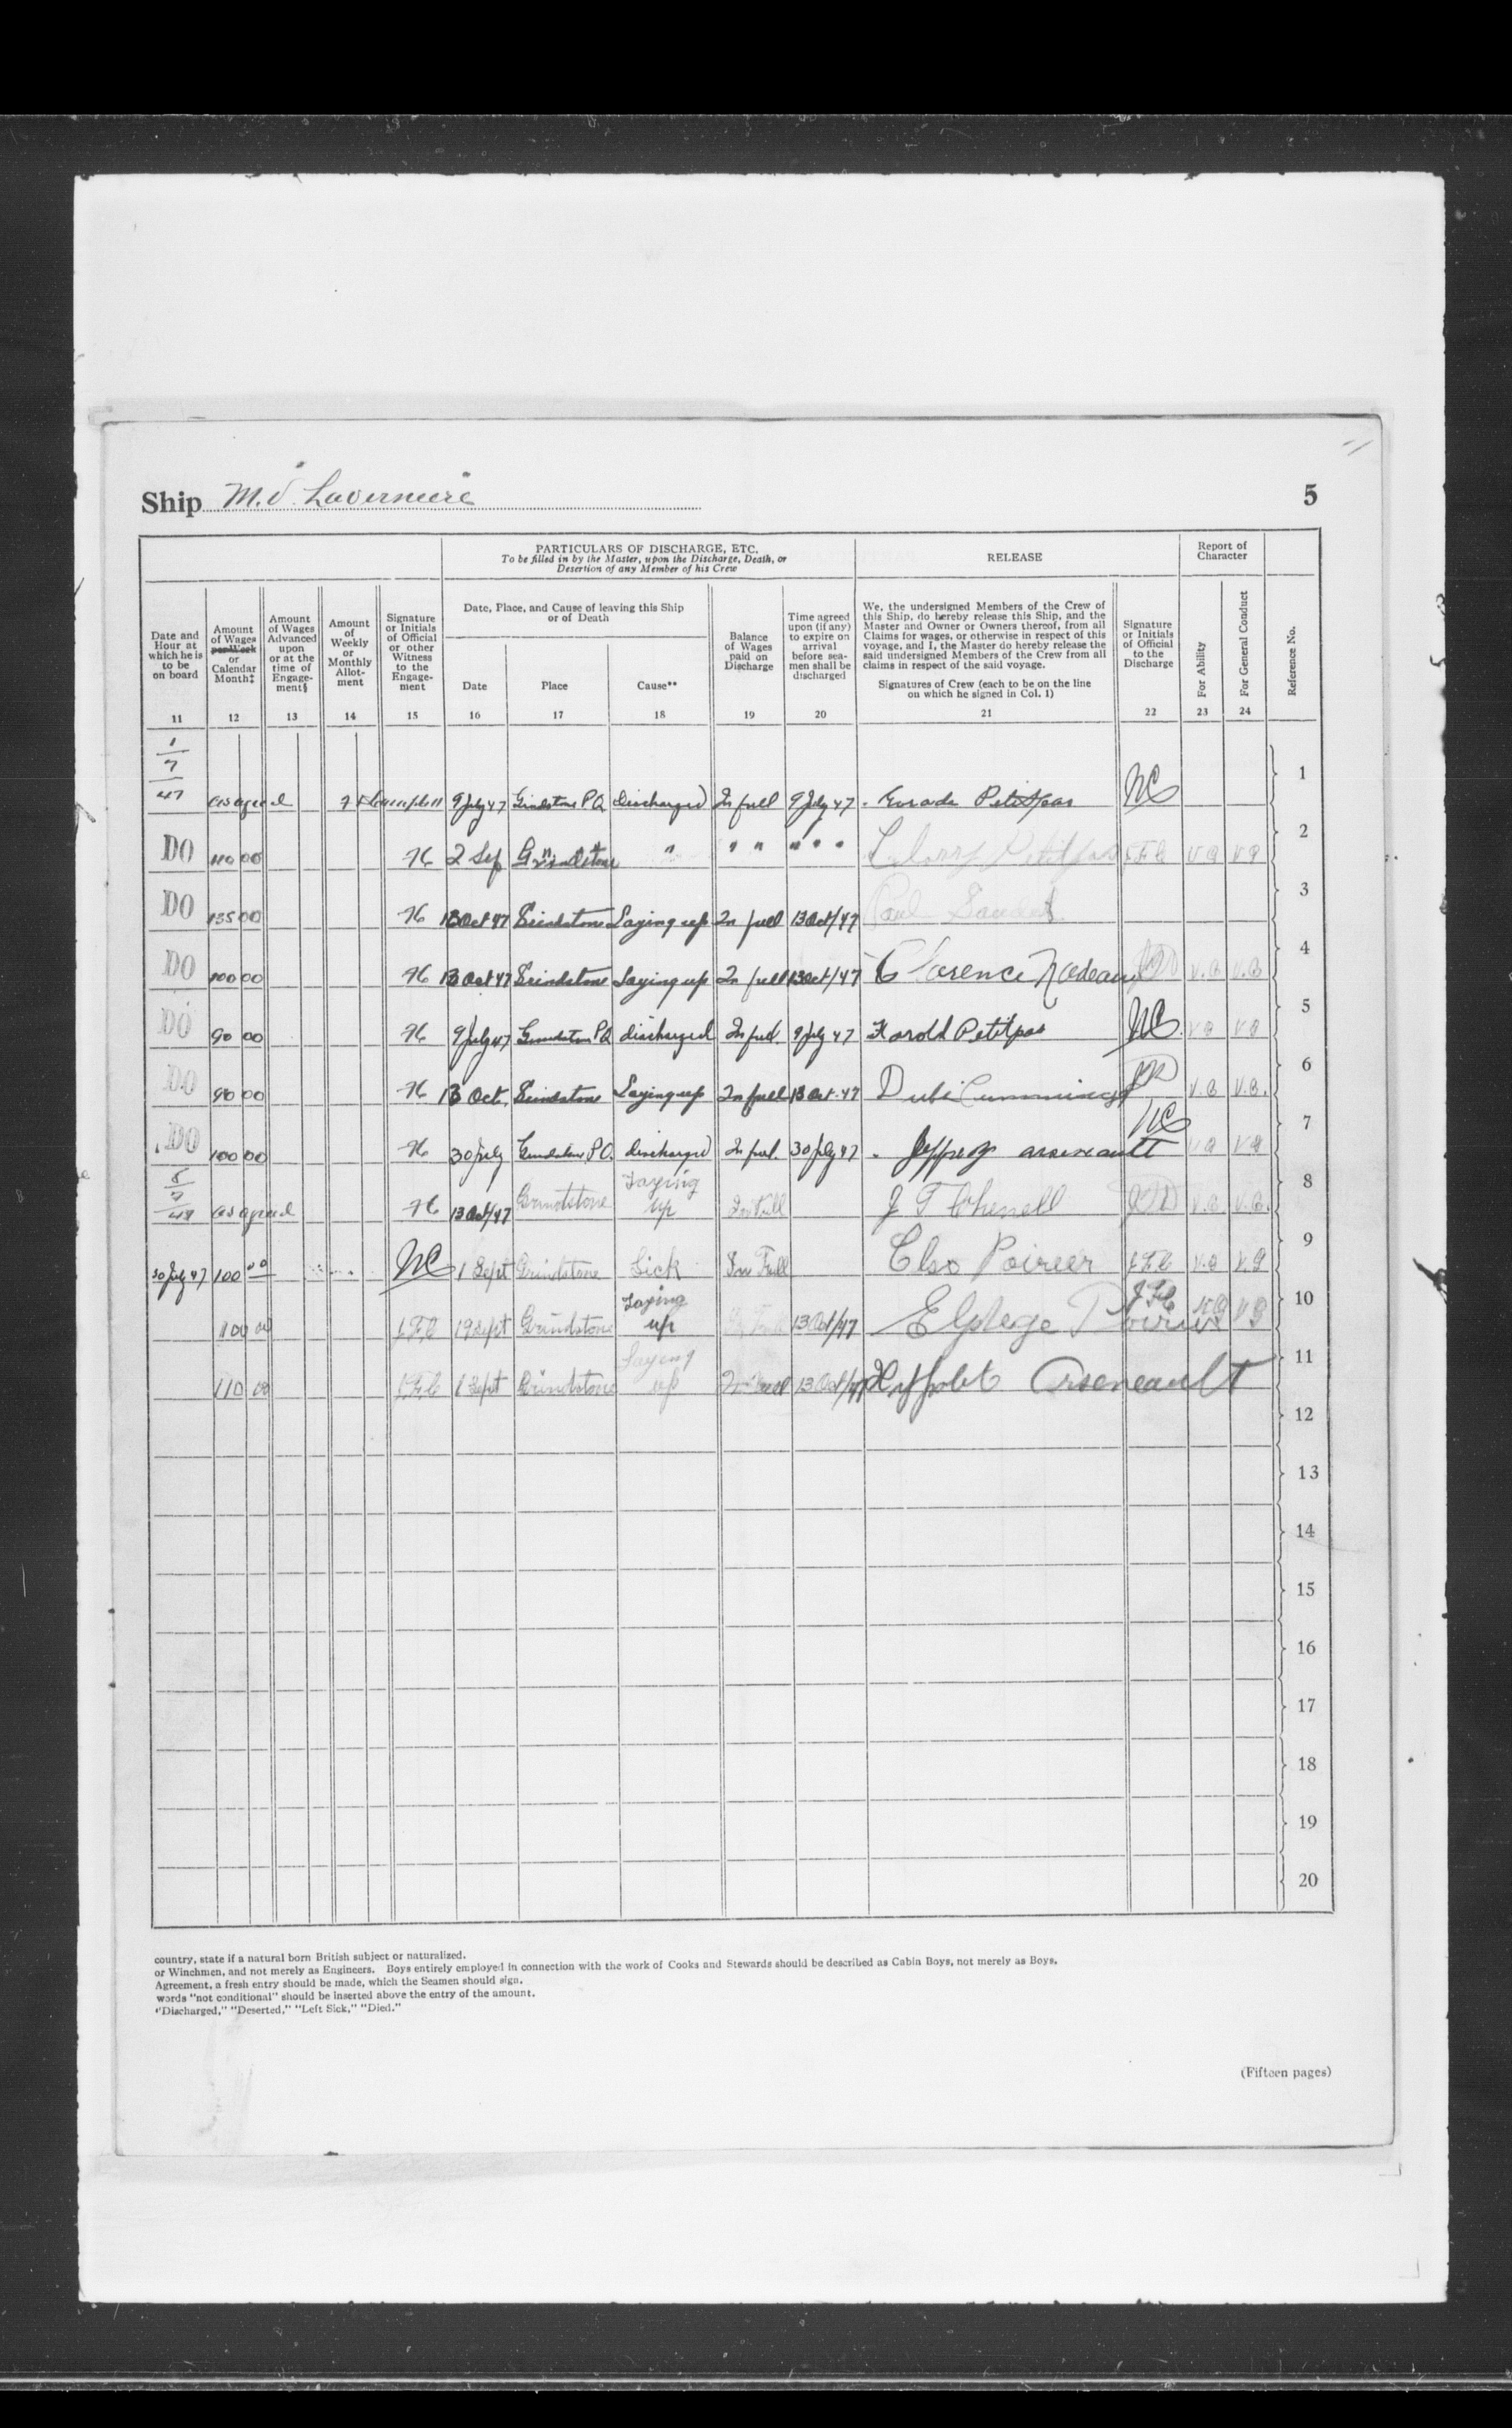 Ship M.V. Lavernière
5
PARTICULARS OF DISCHARGE, ETC.
To be filled in by the Master, upon the Discharge, Death, or
Desertion of any Member of his Crew
RELEASE
Report of
Character
Date and
Hour at
which he is
to be
on board
Amount
of Wages
per Week
or
Calendar
Month‡
Amount
of Wages
Advanced
upon
or at the
time of
Engage-
ment§
Amount
of
Weekly
or
Monthly
Allot-
ment
Signature
or Initials
of Official
or other
Witness
to the
Engage-
ment
Date, Place, and Cause of leaving this Ship
or of Death
Date
Place
Cause**
Balance
of Wages
paid on
Discharge
Time agreed
upon (if any)
to expire on
arrival
before sea-
men shall be
discharged
We, the undersigned Members of the Crew of
this Ship, do hereby release this Ship, and the
Master and Owner or Owners thereof, from all
Claims for wages, or otherwise in respect of this
voyage, and I, the Master do hereby release the
said undersigned Members of the Crew from all
claims in respect of the said voyage.
Signatures of Crew (each to be on the line
on which he signed in Col. 1)
Signature
or Initials
of Official
to the
Discharge
For Ability
For General Conduct
Reference No.
11 12 13 14 15 16 17 18 19 20 21 22 23 24
1/7/47 as agreed 9 July 47 Grindstone P Q Discharged In full 9 July 47 Petitpas NC 1
DO 110 00 2 Sep Grindstone " " " " " " Petitpas J.F.C V.G V.G 2
DO 135 00 13 Oct 47 Grindstone Laying up In full 13 Oct/47 Paul 3
DO 100 00 13 Oct 47 Grindstone Laying up In full 13 Oct/47 Clarence Nadeau V.G V.G 4
DO 90 00 9 July 47 Grindstone PQ discharged In full. 9 July 47 Harold Petitpas NC V.G V.G 5
DO 90 00 13 Oct. Grindstone Laying up In full 13 Oct. 47 Cummings V.G V.G. 6
DO 100 00 30 July Grindstone P Q. discharged In full. 30 July 47 Jeffrey arseneault NC V.G V.G 7
5/7/47 as agreed 13 Oct/47 Grindstone Laying up In Full J F Chenell V.G. V.G. 8
30 July 47 100 00 NC 1 Sept Grindstone Sick In Full Elso Poirier J.F.C V.G V.G 9
100 00 J.F.C 19 Sept Grindstone Laying up In Full 13 Oct/47 Elphege Poirier J.F.C V.G V.G 10
110 00 J.F.C 1 Sept Grindstone Laying up In full 13 Oct/47 Arseneault 11
12
13
14
15
16
17
18
19
20
country, state if a natural born British subject or naturalized.
or Winchmen, and not merely as Engineers. Boys entirely employed in connection with the work of Cooks and Stewards should be described as Cabin Boys, not merely as Boys.
Agreement, a fresh entry should be made, which the Seamen should sign.
words "not conditional" should be inserted above the entry of the amount.
"Discharged," "Deserted," "Left Sick," "Died."
(Fifteen pages)